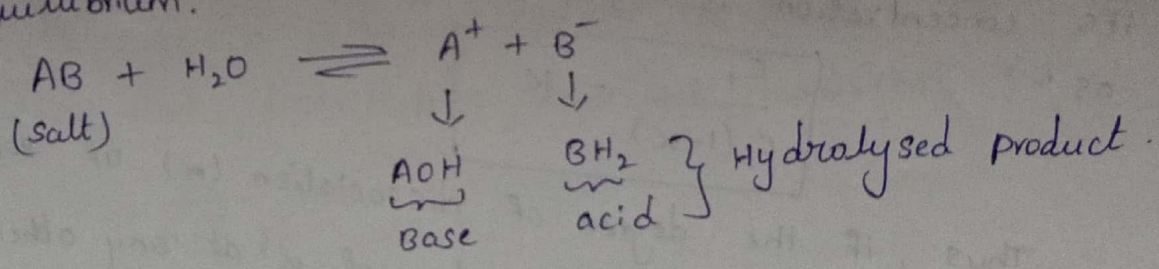 AB + H₂O ⇌ A⁺ + B⁻
(salt) ↓ ↓
AOH BH₂ } Hydrolysed product.
Base acid